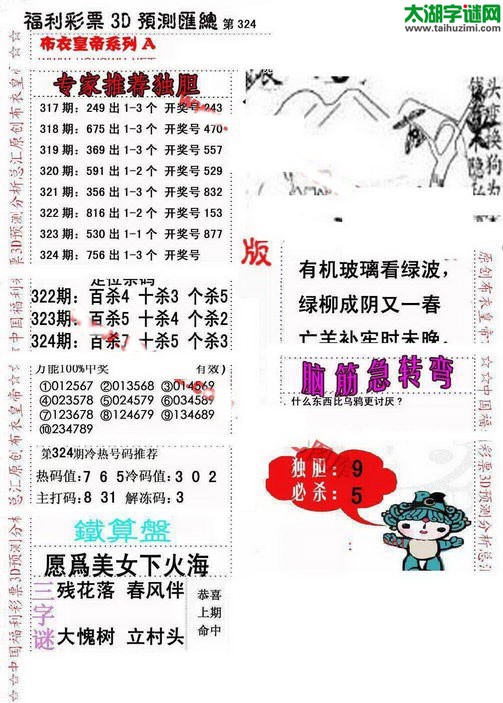 福利彩票3D預測匯總第324
太湖字谜网
www.taihuzimi.com
布衣皇帝系列A
专家推荐独胆
317期：249出1-3个 开奖号243
318期：675出1-3个 开奖号470
319期：369出1-3个 开奖号557
320期：591出1-2个 开奖号529
321期：356出1-3个 开奖号832
322期：816出1-2个 开奖号153
323期：530出1-1个 开奖号877
324期：756出1-3个 开奖号
定位杀码
322期：百杀4 十杀3 个杀5
323期：百杀5 十杀4 个杀2
324期：百杀7 十杀5 个杀3
万能100%中奖 有效)
①012567 ②013568 ③014569
④023578 ⑤024579 ⑥034589
⑦123678 ⑧124679 ⑨134689
⑩234789
第324期冷热号码推荐
热码值：7 6 5冷码值：3 0 2
主打码：8 31 解冻码：3
鐵算盤
愿爲美女下火海
三字谜
残花落 春风伴
大愧树 立村头
恭喜
上期
命中
版
有机玻璃看绿波，
绿柳成阴又一春
亡羊补牢时未晚，
脑筋急转弯
什么东西比乌鸦更讨厌？
独胆：9
必杀：5